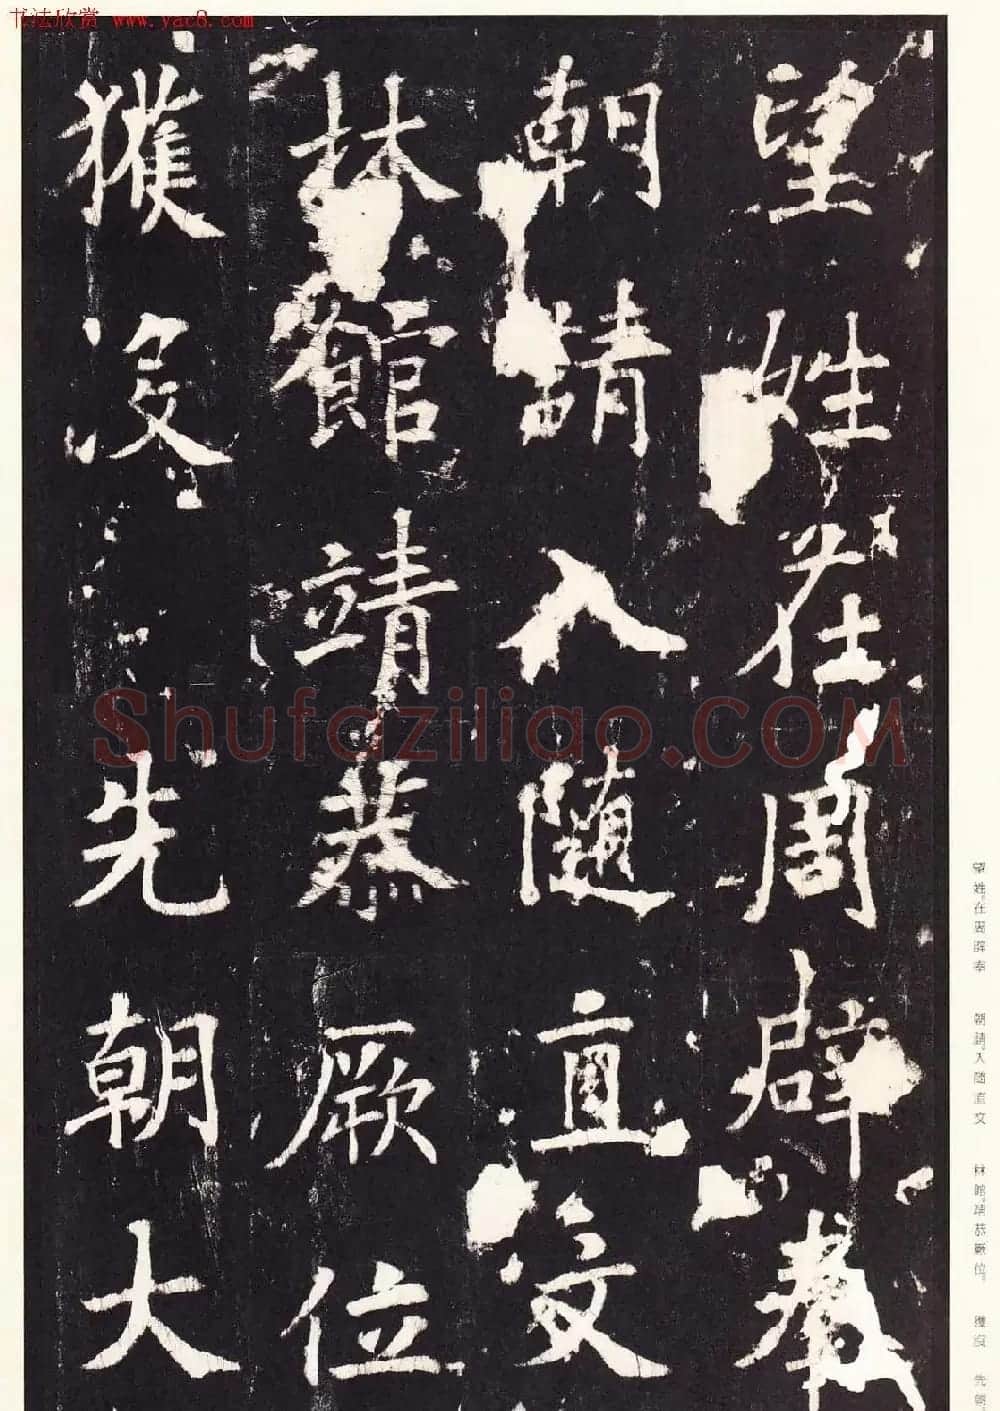 书法欣赏 www.yac8.com
望姓在周辟奉
朝請入隨直文
林館靖恭厥位
獲沒先朝大
Shufaziliao.COM
望姓。在周辟奉
朝請。入随直文
林館。靖恭厥位。
獲沒
先朝。